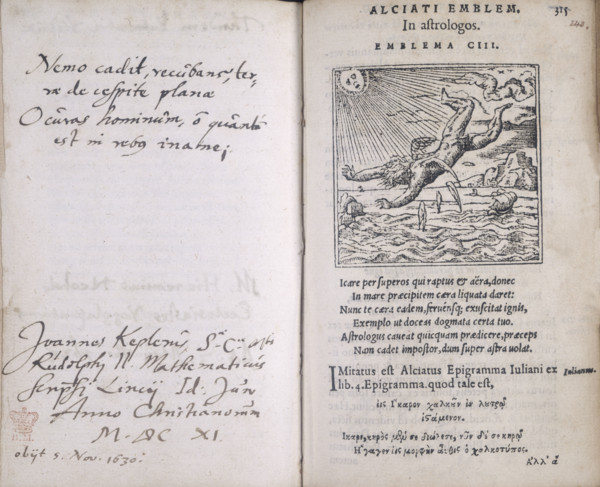 Nemo cadit, recubans, ter-
ræ de cespite planæ
O curas hominum, ô quantũ
est in rebꝰ inane;
Joannes Keplerus, S. C. Mtis
Rudolphi II. Mathematicus
scripsi Lincij Id. Jun.
Anno Christianorum
M. DC XI.
obijt 5. Nov. 1630.
ALCIATI EMBLEM. 315
In astrologos.
EMBLEMA CIII.
Icare per superos qui raptus & aëra, donec
In mare præcipitem cæra liquata daret:
Nunc te cæra eadem, feruensq; exuscitat ignis,
Exemplo ut doceas dogmata certa tuo.
Astrologus caueat quicquam prædicere, præceps
Nam cadet impostor, dum super astra uolat.
IMitatus est Alciatus Epigramma Iuliani ex Iulianus.
lib. 4. Epigramma. quod tale est,
εἰς Ἴκαρον χαλκῆν ἐν λυτρῷ
ἱστάμενον.
Ἴκαρε, κηρὸς μέν σε διώλεσε, νῦν δέ σε κηρῷ
Ἤγαγεν εἰς μορφὴν αὖθις ὁ χαλκοτύπος.
Ἀλλ' ἀ